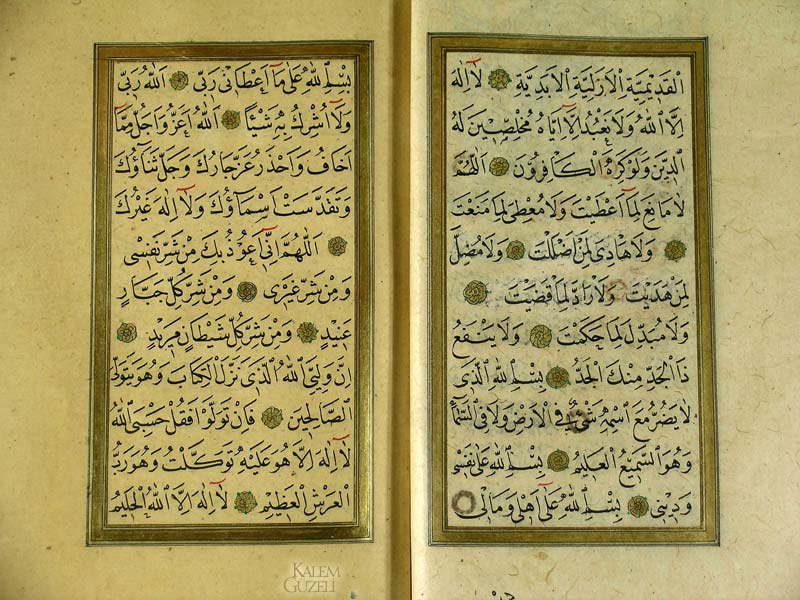 الْقَدِيمِيَّةِ الْاَزَلِيَّةِ الْاَبَدِيَّةِ لَا اِلٰهَ
اِلَّا اللّٰهُ وَلَا نَعْبُدُ اِلَّا اِيَّاهُ مُخْلِصِينَ لَهُ
الدِّينَ وَلَوْ كَرِهَ الْكَافِرُونَ اَللّٰهُمَّ
لَا مَانِعَ لِمَا اَعْطَيْتَ وَلَا مُعْطِىَ لِمَا مَنَعْتَ
وَلَا هَادِىَ لِمَنْ اَضْلَلْتَ وَلَا مُضِلَّ
لِمَنْ هَدَيْتَ وَلَا رَادَّ لِمَا قَضَيْتَ
وَلَا مُبَدِّلَ لِمَا حَكَمْتَ وَلَا يَنْفَعُ
ذَا الْجَدِّ مِنْكَ الْجَدُّ بِسْمِ اللّٰهِ الَّذِى
لَا يَضُرُّ مَعَ اسْمِهِ شَىْءٌ فِى الْاَرْضِ وَلَا فِى السَّمَاءِ
وَهُوَ السَّمِيعُ الْعَلِيمُ بِسْمِ اللّٰهِ عَلٰى نَفْسِى
وَدِينِى بِسْمِ اللّٰهِ عَلٰى اَهْلِى وَمَالِى
بِسْمِ اللّٰهِ عَلٰى مَا اَعْطَانِى رَبِّى اَللّٰهُ رَبِّى
وَلَا اُشْرِكُ بِهِ شَيْئًا اَللّٰهُ اَعَزُّ وَاَجَلُّ مِمَّا
اَخَافُ وَاَحْذَرُ عَزَّ جَارُكَ وَجَلَّ ثَنَاؤُكَ
وَتَقَدَّسَتْ اَسْمَاؤُكَ وَلَا اِلٰهَ غَيْرُكَ
اَللّٰهُمَّ اِنِّى اَعُوذُ بِكَ مِنْ شَرِّ نَفْسِى
وَمِنْ شَرِّ غَيْرِى وَمِنْ شَرِّ كُلِّ جَبَّارٍ
عَنِيدٍ وَمِنْ شَرِّ كُلِّ شَيْطَانٍ مَرِيدٍ
اِنَّ وَلِيِّىَ اللّٰهُ الَّذِى نَزَّلَ الْكِتَابَ وَهُوَ يَتَوَلَّى
الصَّالِحِينَ فَاِنْ تَوَلَّوْا فَقُلْ حَسْبِىَ اللّٰهُ
لَا اِلٰهَ اِلَّا هُوَ عَلَيْهِ تَوَكَّلْتُ وَهُوَ رَبُّ
الْعَرْشِ الْعَظِيمِ لَا اِلٰهَ اِلَّا اللّٰهُ الْحَلِيمُ
KALEM
GÜZELİ